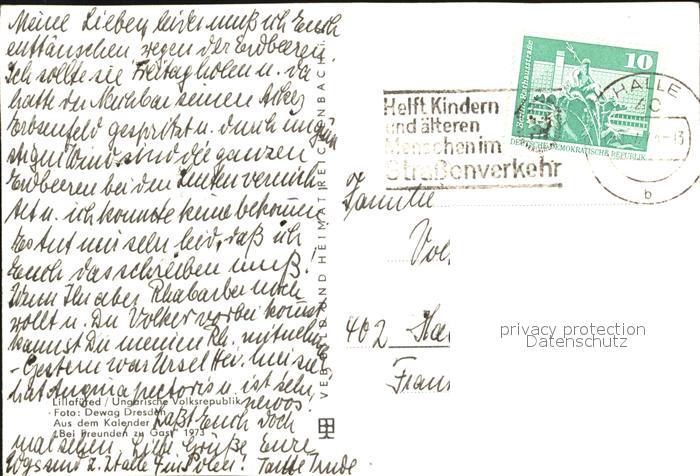 Meine Lieben, leider muß ich Euch
enttäuschen wegen der Erdbeeren.
Ich sollte sie Freitag holen u. da
hatte der Nachbar seinen Acker
gespritzt u. durch
Wind sind die ganzen
Erdbeeren bei den Leuten vernich
tet u. ich konnte keine bekommen
Es tut mir sehr leid, daß ich
Euch das schreiben muß!
Wenn Ihr aber Rhabarber noch
wollt u. Du Volker vorbei kommst
kannst Du meinen Rh. mitnehmen
- Gestern war Ursel
hat Angina pectoris u. ist sehr
nervös.
Lillafüred / Ungarische Volksrepublik
Foto: Dewag Dresden
Aus dem Kalender
"Bei Freunden zu Gast" 1973
Laßt Euch doch
mal sehen. Liebe Grüße Eure
z. Z. Halle Tante Trude
VERLAG HEIMAT REICHENBACH
Helft Kindern
und älteren
Menschen im
Straßenverkehr
10
Rathausstraße
DEUTSCHE DEMOKRATISCHE REPUBLIK
HALLE
-13
b
Familie
Vol
402 Ha
Fran
privacy protection
Datenschutz